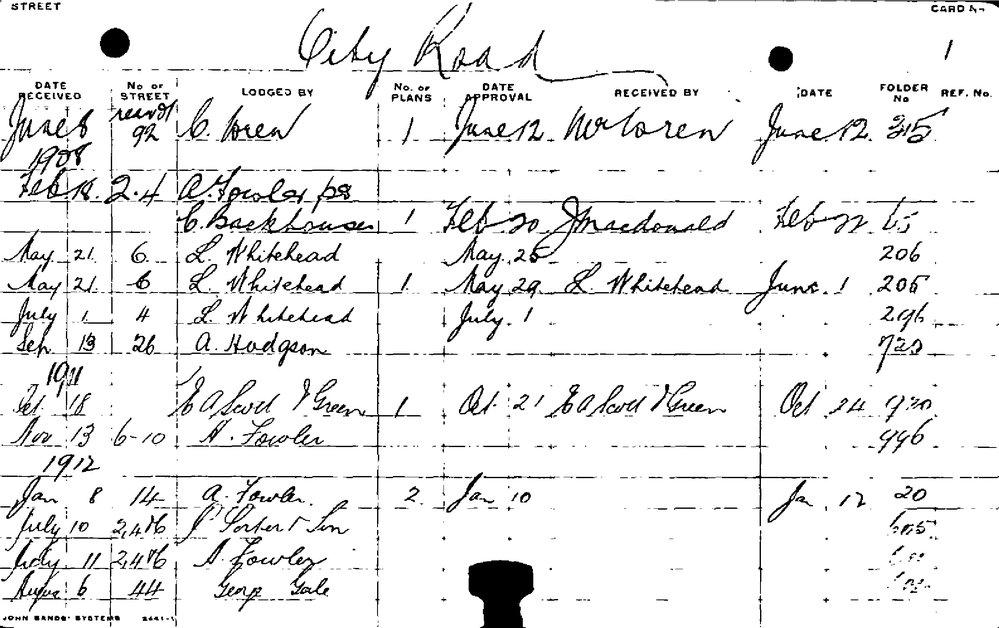 STREET CARD No
City Road 1
DATE RECEIVED No OF STREET LODGED BY No. OF PLANS DATE APPROVAL RECEIVED BY DATE FOLDER No REF. No.
June 8 rear of 92 C. Loren 1 June 12 June 12 315
1908
Feb. 18. 2.4 A. Fowler per
C. Backhouse 1 Feb 20 J Macdonald Feb 22 65
May 21 6 L. Whitehead May 25 206
May 21 6 L. Whitehead 1 May 29 L. Whitehead June 1 205
July 1 4 L. Whitehead July 1 296
Sep 13 26 A. Hodgson
1911
Oct 18 E A Scott & Green 1 Oct 21 E A Scott & Green Oct 24 930
Nov 13 6-10 A. Fowler 996
1912
Jan 8 14 A. Fowler. 2 Jan 10 Jan 12 20
July 10 2,4&6 & Son
July 11 2,4&6 A. Fowler
6 44 Gale
JOHN SANDS SYSTEMS